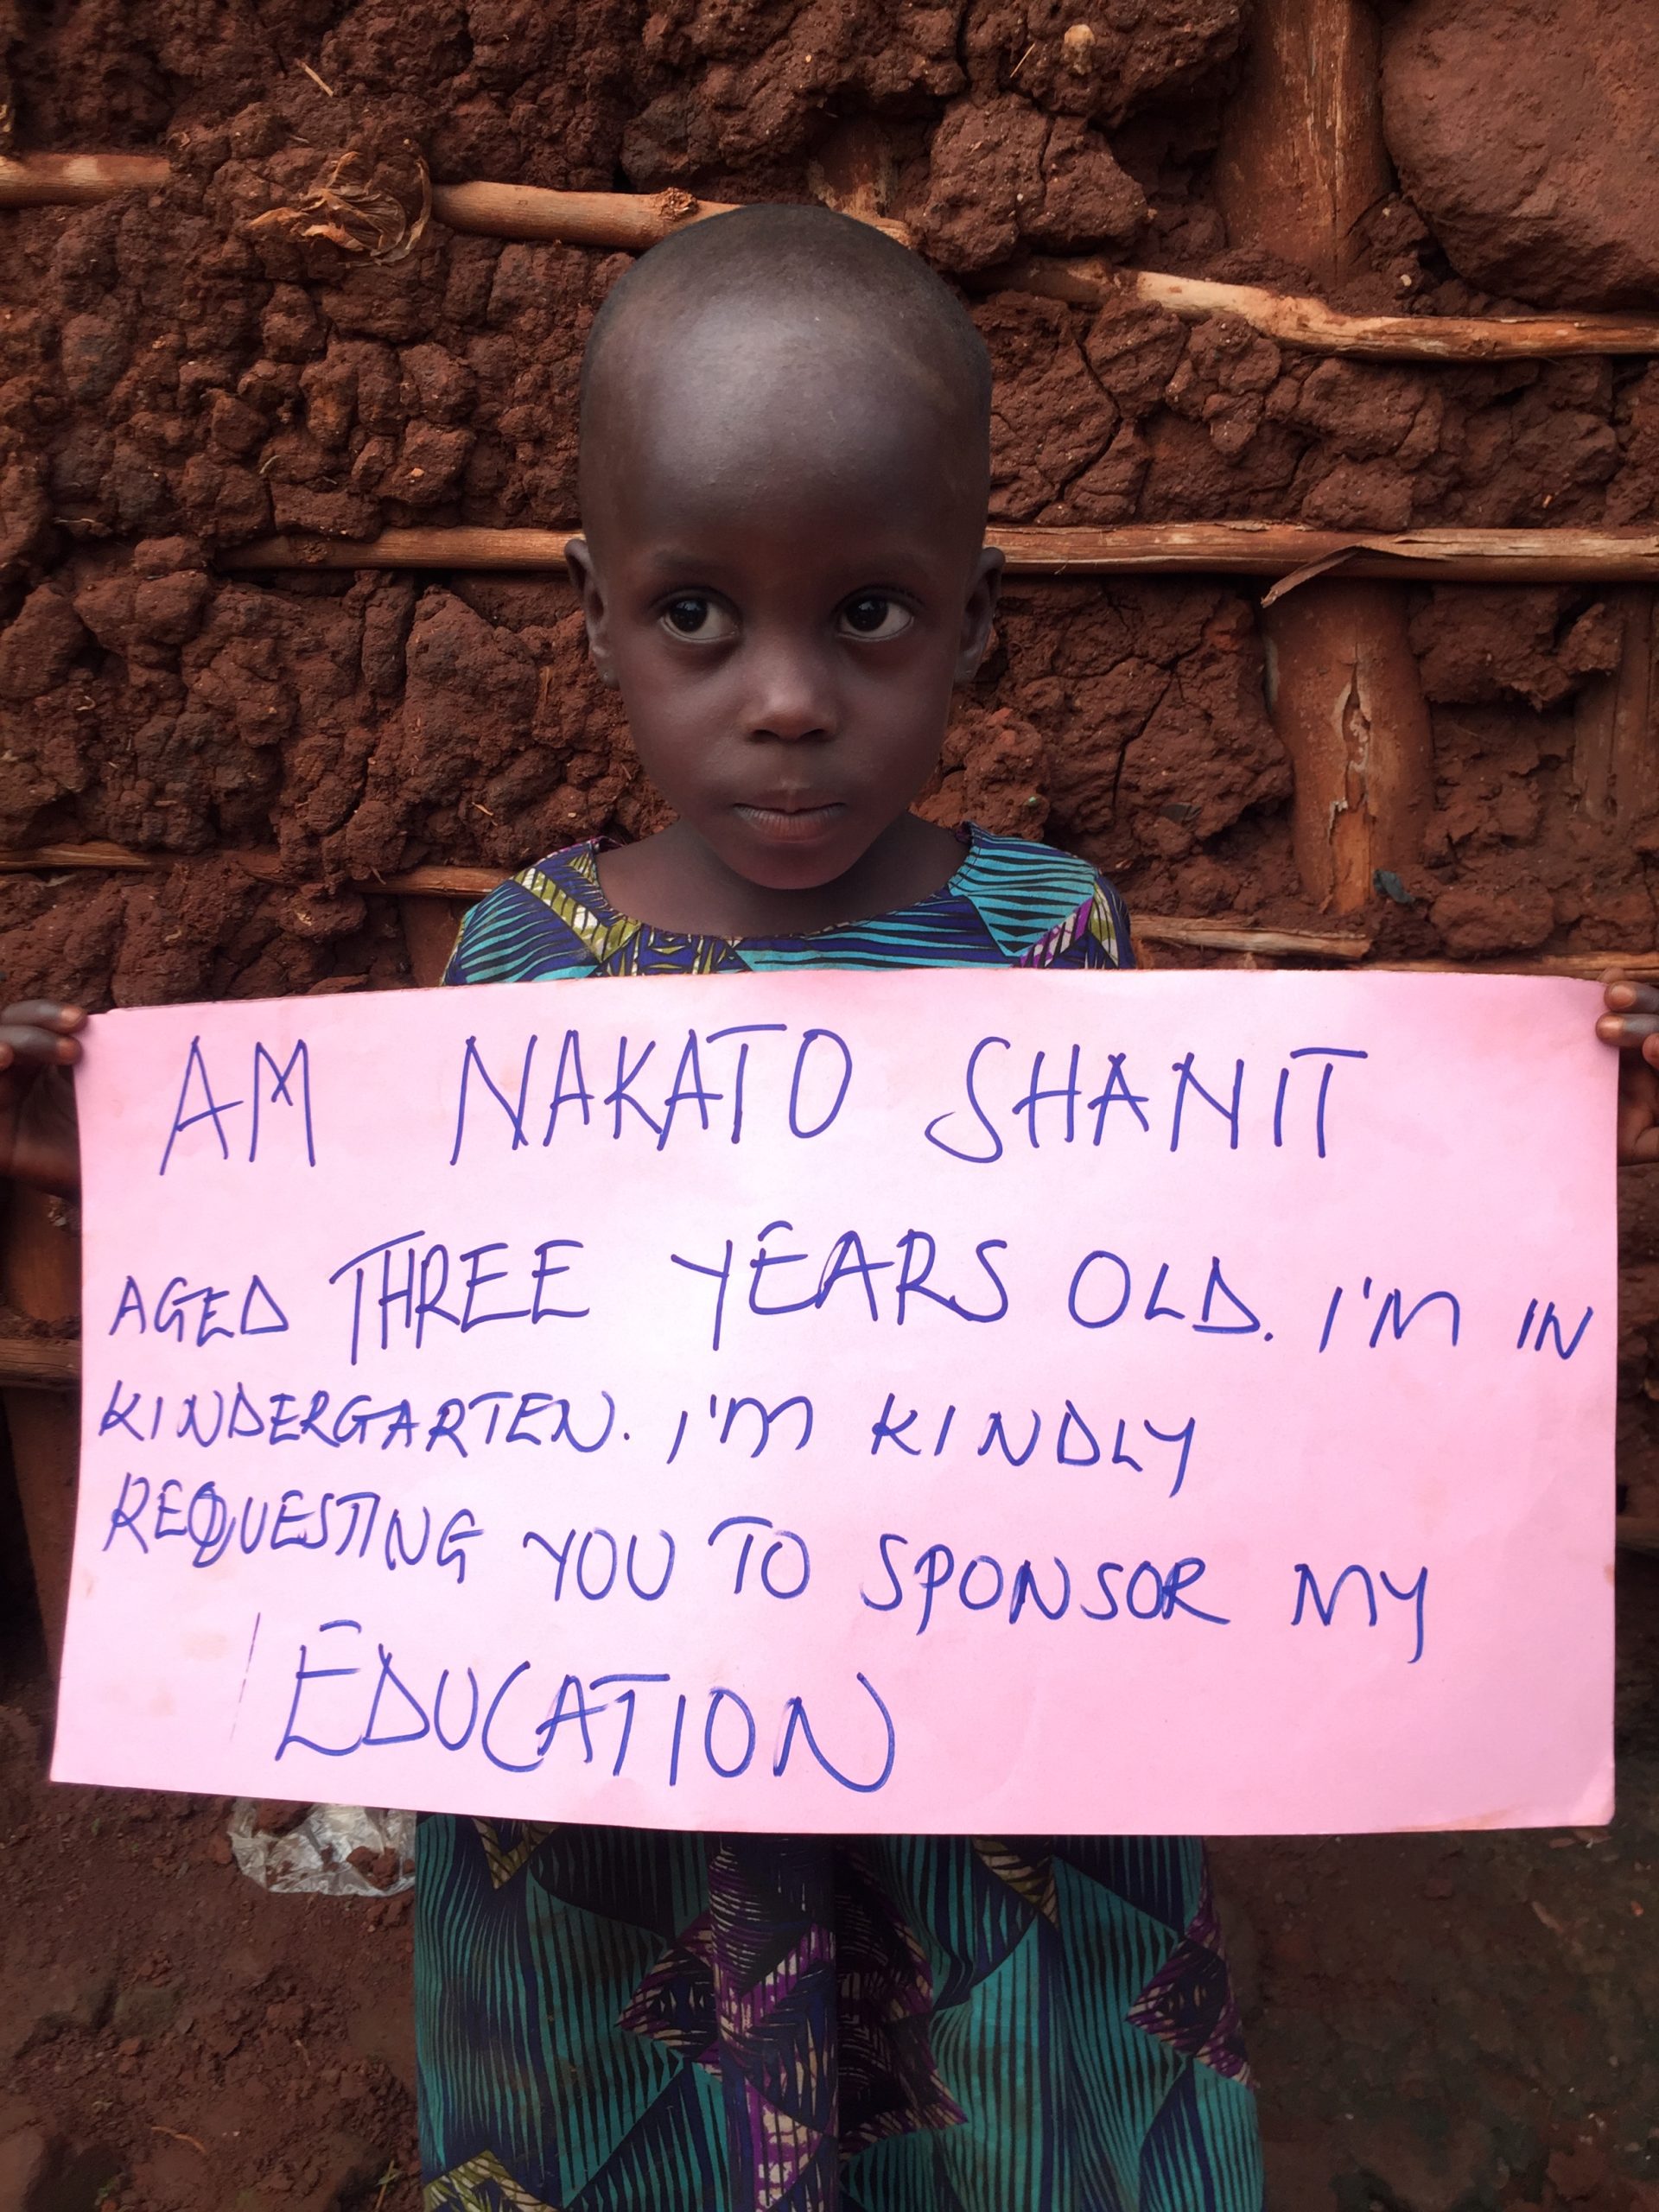 AM NAKATO SHANIT
AGED THREE YEARS OLD. I'M IN
KINDERGARTEN. I'M KINDLY
REQUESTING YOU TO SPONSOR MY
EDUCATION